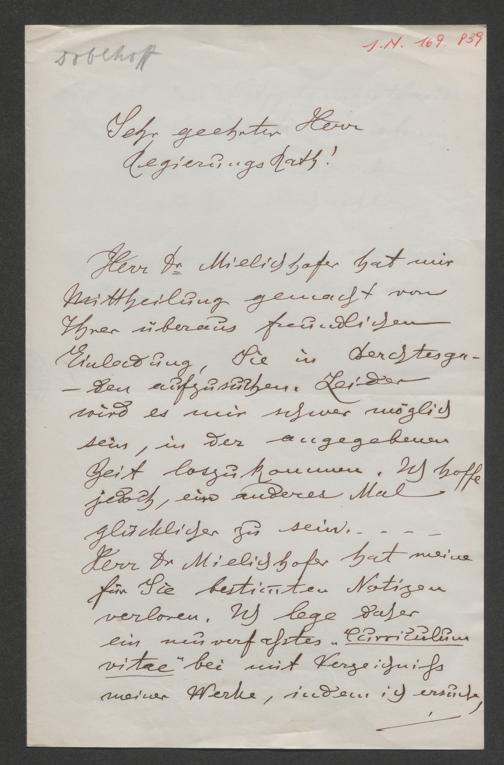 Doblhoff
I.N. 169.839
Sehr geehrter Herr
Regierungs Rath!
Herr Dr Mielichhofer hat mir
Mittheilung gemacht von
Ihrer überaus freundlichen
Einladung, Sie in Berchtesga-
-den aufzusuchen. Leider
wird es mir schwer möglich
sein, in der angegebenen
Zeit loszukommen. Ich hoffe
jedoch, ein anderes Mal
glücklicher zu sein. - - - -
Herr Dr Mielichhofer hat meine
für Sie bestimten Notizen
verloren. Ich lege daher
ein neuverfaßtes „Curriculum
vitae" bei mit Verzeichniß
meiner Werke, indem ich ersuche,